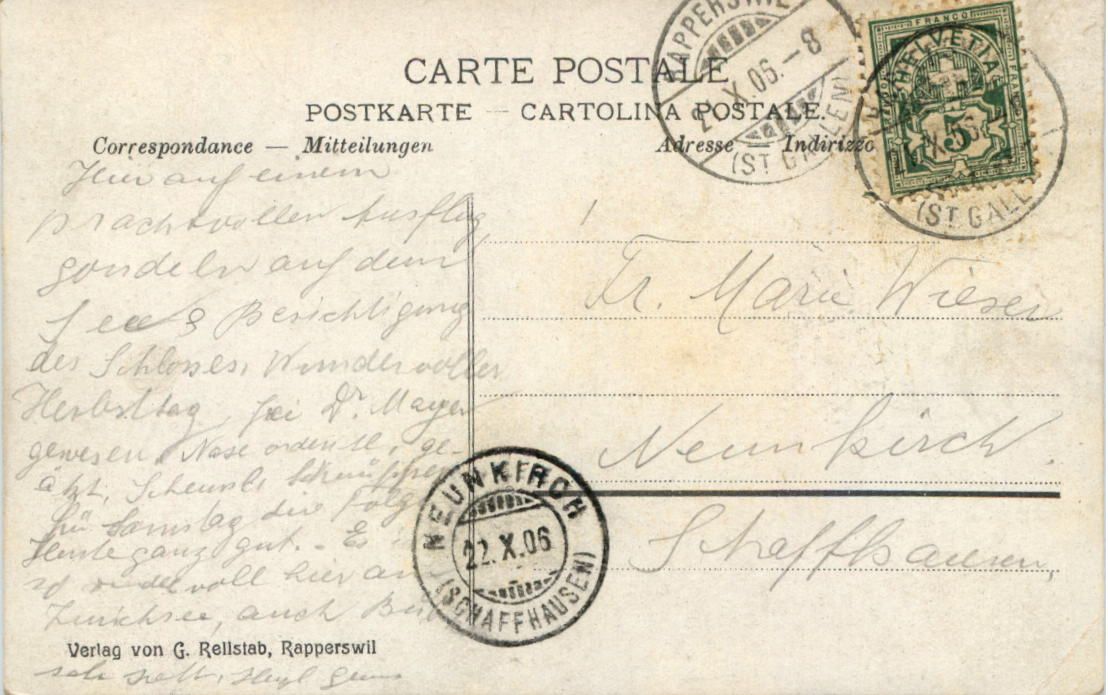 CARTE POSTALE
POSTKARTE – CARTOLINA POSTALE.
Correspondance — Mitteilungen
Adresse — Indirizzo
RAPPERSWIL
X.06.–8
(ST. GALLEN)
FRANCO
HELVETIA
5
(ST. GALL
Hier auf einem
prachtvollen Ausflug,
gondeln auf dem
See & Besichtigung
des Schlosses, Wundervoller
Herbsttag, bei Dr. Mayer
gewesen, Nase
für Samstag die
Heute ganz gut. –
voll hier am
Zürichsee, auch
sehr nett,
Fr. Marie Wieser
Neunkirch.
Schaffhausen,
NEUNKIRCH
22.X.06
(SCHAFFHAUSEN)
Verlag von G. Rellstab, Rapperswil